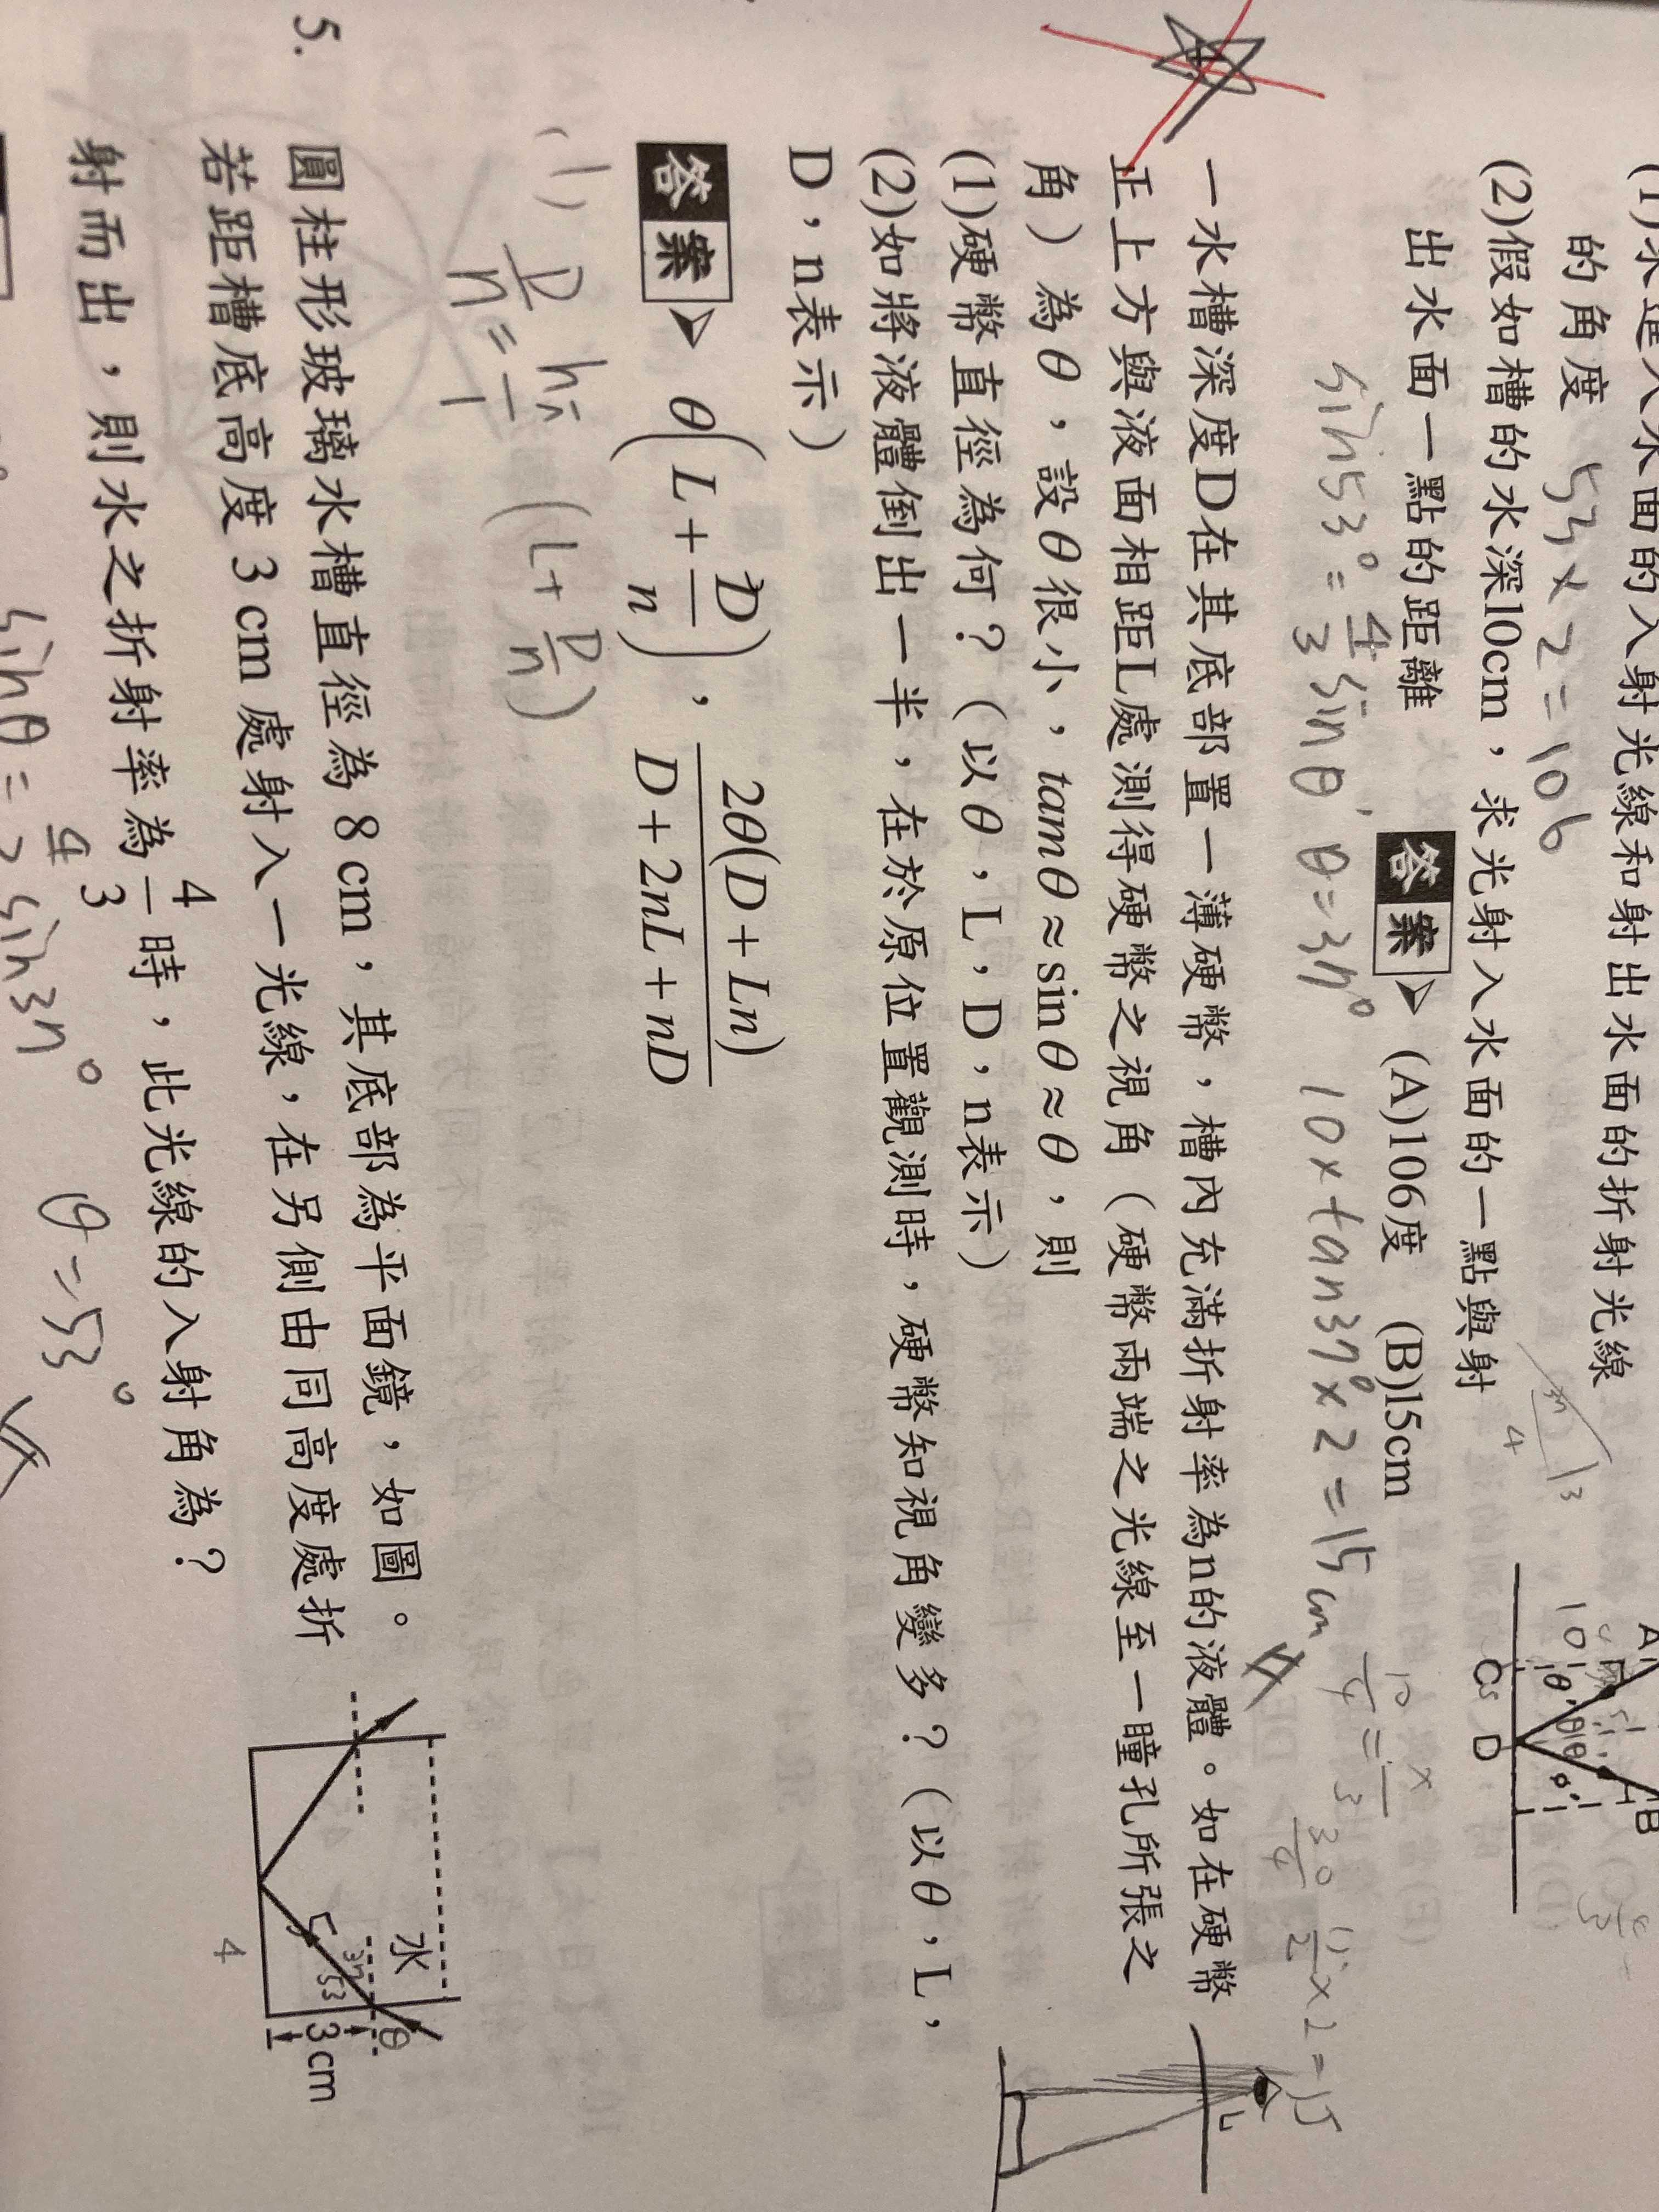 (1)求進入水面的入射光線和射出水面的折射光線
的角度 53×2=106
(2)假如槽的水深10cm，求光射入水面的一點與射
出水面一點的距離
答案 (A)106度 (B)15cm
sin53°=4/3 sinθ' θ=37° 10×tan37°×2=15cm
A B
C D
一水槽深度D在其底部置一薄硬幣，槽內充滿折射率為n的液體。如在硬幣
正上方與液面相距L處測得硬幣之視角（硬幣兩端之光線至一瞳孔所張之
角）為θ，設θ很小，tanθ≈sinθ≈θ，則
(1)硬幣直徑為何？（以θ，L，D，n表示）
(2)如將液體倒出一半，在於原位置觀測時，硬幣知視角變多？（以θ，L，
D，n表示）
L
答案 θ(L+D/n)，2θ(D+Ln)/(D+2nL+nD)
(1) D/n=h/1 (L+D/n)
5. 圓柱形玻璃水槽直徑為8cm，其底部為平面鏡，如圖。
若距槽底高度3cm處射入一光線，在另側由同高度處折
射而出，則水之折射率為4/3時，此光線的入射角為？
水
θ
37 53
3 cm
4
sinθ=4/3 sin37° θ=53°